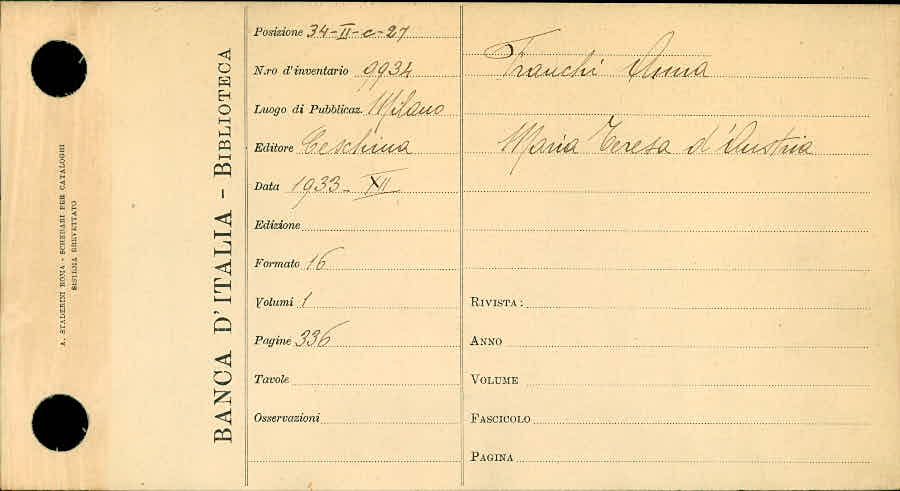 A. STADERINI ROMA - SCHEDARI PER CATALOGHI
SISTEMA BREVETTATO
BANCA D'ITALIA - BIBLIOTECA
Posizione 34-II-c-27
N.ro d'inventario 9934
Luogo di Pubblicaz. Milano
Editore Ceschina
Data 1933 - XII
Edizione
Formato 16
Volumi 1
Pagine 336
Tavole
Osservazioni
Franchi Anna
Maria Teresa d'Austria
RIVISTA:
ANNO
VOLUME
FASCICOLO
PAGINA